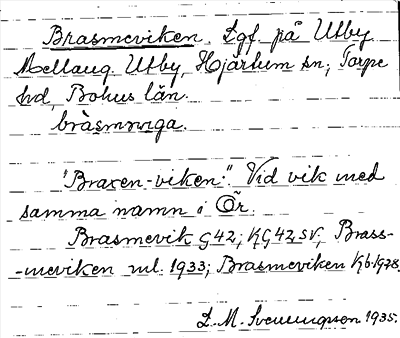 Brasmeviken. Lgf. på Utby
Mellang. Utby, Hjärtum sn; Torpe
hd, Bohus län.
bràsmvviga.
"Braxen-viken". Vid vik med
samma namn i Ör.
Brasmevik G 42; KG 42 SV; Brass-
-meviken ml. 1933; Brasmeviken Kb 1978.
D. M. Svenungsson 1935.